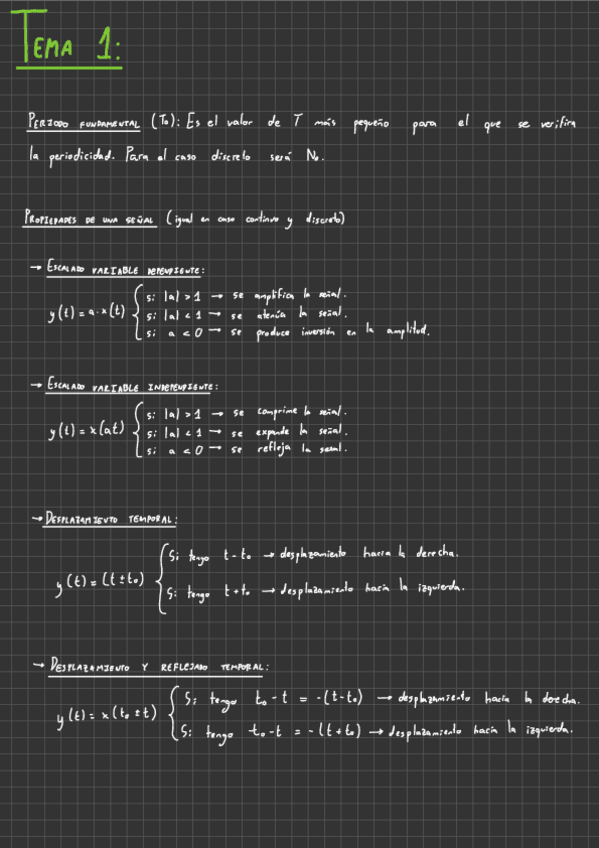 TEMA 1:
PERIODO FUNDAMENTAL (T₀): Es el valor de T más pequeño para el que se verifira
la periodicidad. Para al caso discreto será N₀.
PROPIEDADES DE UNA SEÑAL (igual en caso continuo y discreto)
→ ESCALADO VARIABLE DEPENDIENTE:
y(t) = a·x(t) { Si |a| > 1 → se amplifica la señal.
Si |a| < 1 → se atenúa la señal.
Si a < 0 → se produce inversión en la amplitud.
→ ESCALADO VARIABLE INDEPENDIENTE:
y(t) = x(at) { Si |a| > 1 → se comprime la señal.
Si |a| < 1 → se expande la señal.
Si a < 0 → se refleja la señal.
→ DESPLAZAMIENTO TEMPORAL:
y(t) = (t ± t₀) { Si tengo t - t₀ → desplazamiento hacia la derecha.
Si tengo t + t₀ → desplazamiento hacia la izquierda.
→ DESPLAZAMIENTO Y REFLEJADO TEMPORAL:
y(t) = x(t₀ ± t) { Si tengo t₀ - t = -(t - t₀) → desplazamiento hacia la derecha.
Si tengo -t₀ - t = -(t + t₀) → desplazamiento hacia la izquierda.